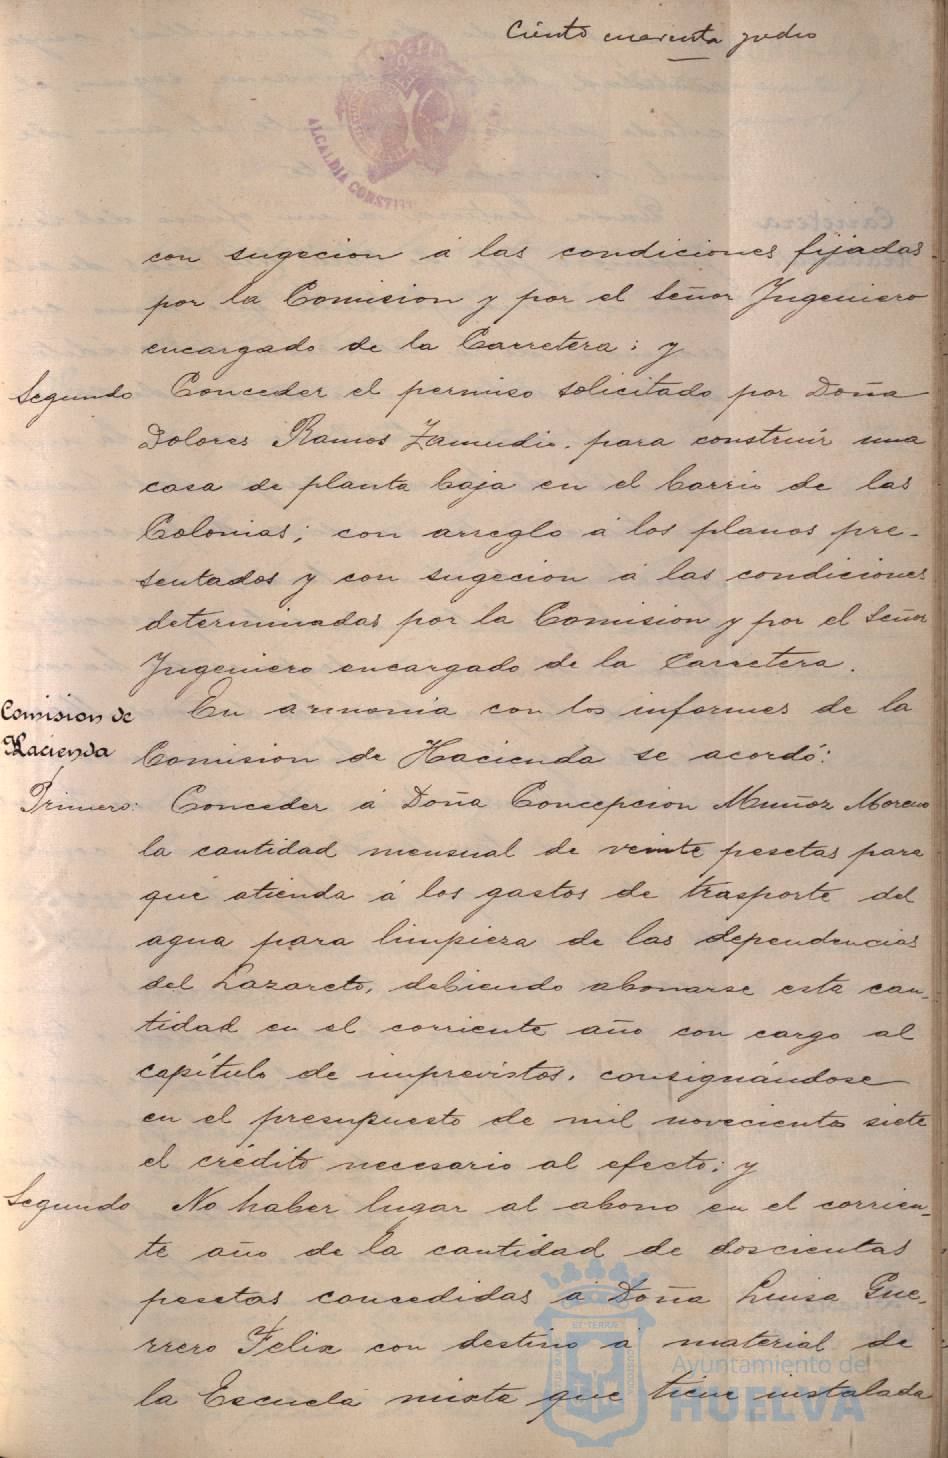 Ciento cuarenta y dos
ALCALDIA CONSTIT
con sugecion á las condiciones fijadas
por la Comision y por el Señor Ingeniero
encargado de la Carretera; y
Segundo Conceder el permiso solicitado por Doña
Dolores Ramos Zamudio, para construir una
casa de planta baja en el barrio de las
Colonias; con arreglo á los planos pre-
sentados y con sugecion á las condiciones
determinadas por la Comision y por el Señor
Ingeniero encargado de la Carretera.
Comision de Hacienda
En armonia con los informes de la
Comision de Hacienda se acordó:
Primero: Conceder á Doña Concepcion Muñoz Moreno
la cantidad mensual de veinte pesetas para
que atienda á los gastos de trasporte del
agua para limpieza de las dependencias
del Lazareto, debiendo abonarse esta can-
tidad en el corriente año con cargo al
capítulo de imprevistos, consignándose
en el presupuesto de mil novecientos siete
el crédito necesario al efecto; y
Segundo No haber lugar al abono en el corrien-
te año de la cantidad de doscientas
pesetas concedidas á Doña Luisa Gue-
rrero Felix con destino á material de
la Escuela mixta que tiene instalada
Ayuntamiento de
HUELVA